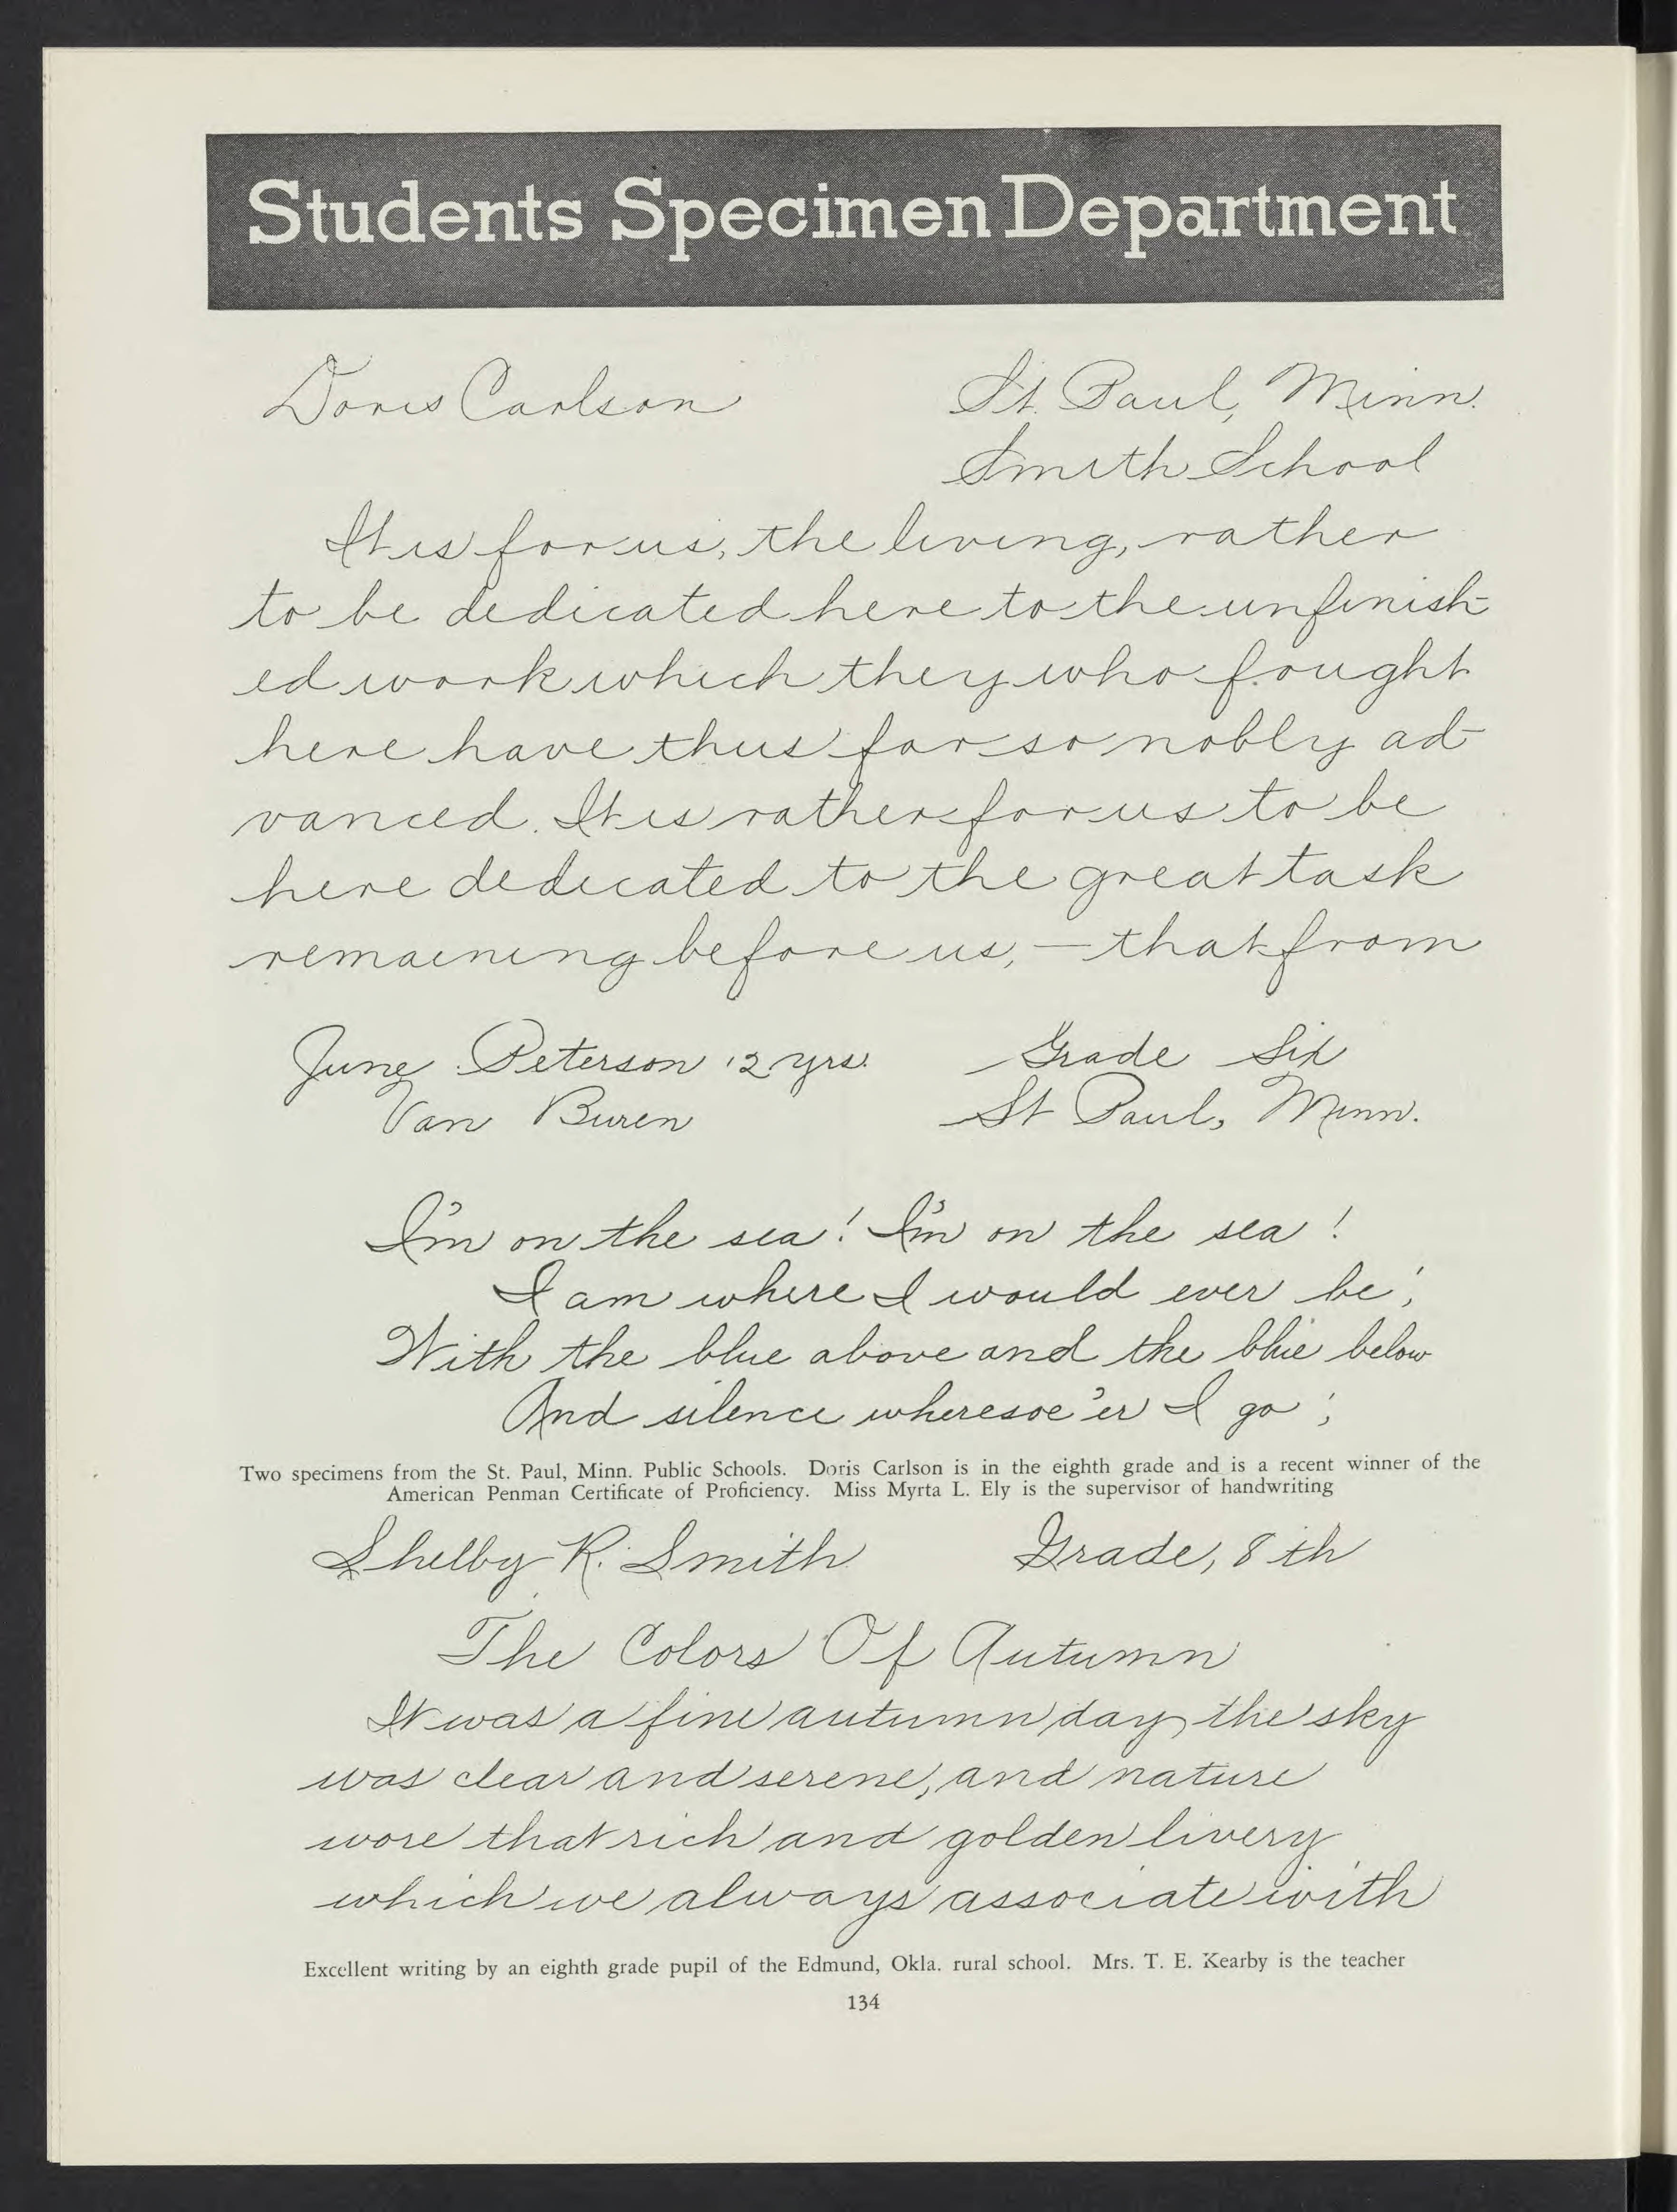 Students Specimen Department
Doris Carlson St. Paul, Minn.
Smith School
It is for us, the living, rather
to be dedicated here to the unfinish-
ed work which they who fought
here have thus far so nobly ad-
vanced. It is rather for us to be
here dedicated to the great task
remaining before us, — that from
June Peterson 12 yrs. Grade Six
Van Buren St Paul, Minn.
I'm on the sea! I'm on the sea!
I am where I would ever be;
With the blue above and the blue below
And silence wheresoe'er I go;
Two specimens from the St. Paul, Minn. Public Schools. Doris Carlson is in the eighth grade and is a recent winner of the
American Penman Certificate of Proficiency. Miss Myrta L. Ely is the supervisor of handwriting
Shelby R. Smith Grade, 8th
The Colors Of Autumn
It was a fine autumn day, the sky
was clear and serene, and nature
wore that rich and golden livery
which we always associate with
Excellent writing by an eighth grade pupil of the Edmund, Okla. rural school. Mrs. T. E. Kearby is the teacher
134